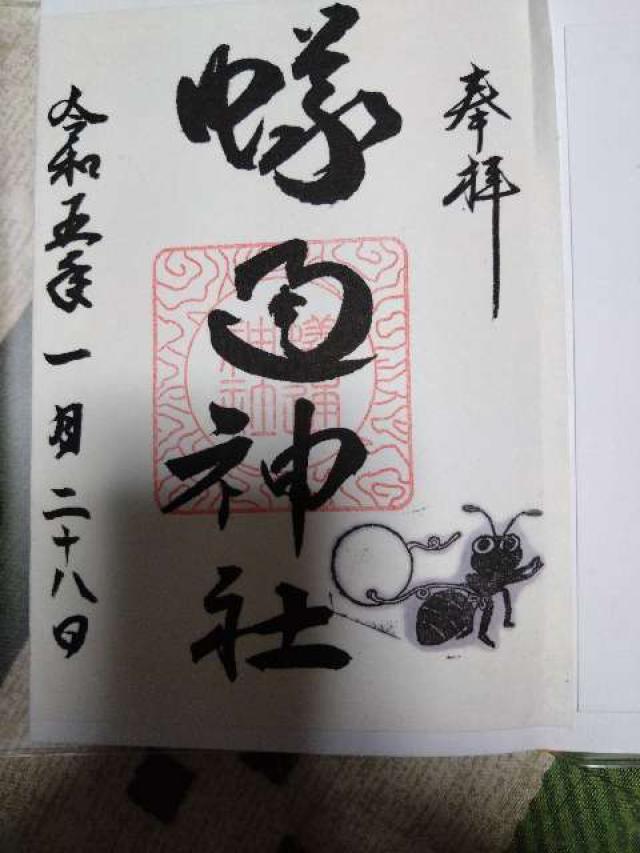 奉拝
蟻通神社
令和五年一月二十八日
蟻通
神社